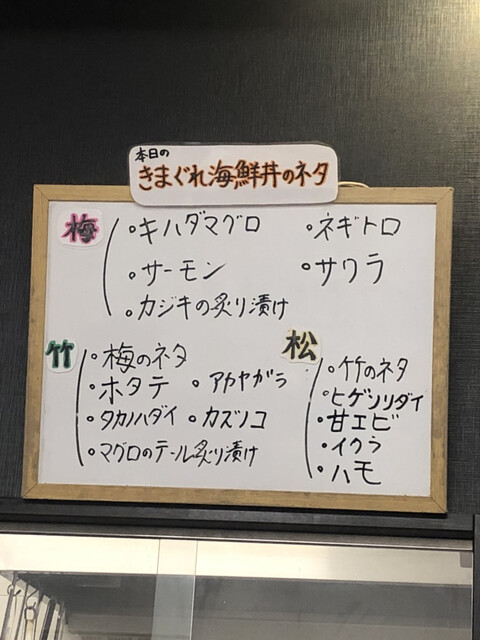 本日の
きまぐれ海鮮丼のネタ
梅
・キハダマグロ ・ネギトロ
・サーモン ・サワラ
・カジキの炙り漬け
竹
・梅のネタ
・ホタテ ・アカヤガラ
・タカノハダイ ・カズノコ
・マグロのテール炙り漬け
松
・竹のネタ
・ヒゲソリダイ
・甘エビ
・イクラ
・ハモ